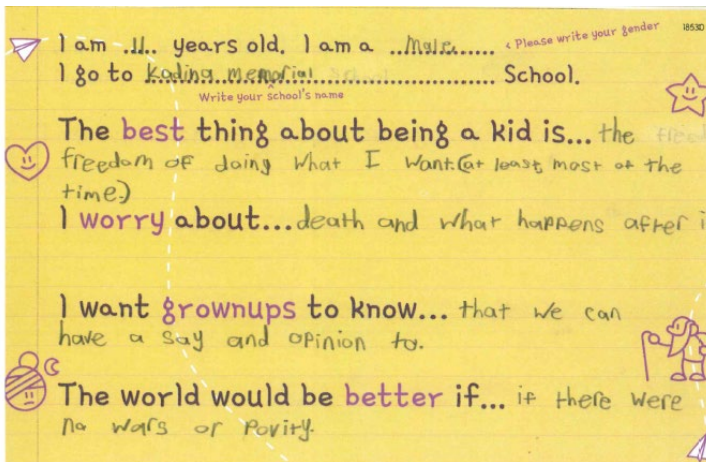 I am 11 years old. I am a Male < Please write your gender 1853D
I go to Kadina memorial School.
Write your school's name
The best thing about being a kid is... the
freedom of doing what I want.(at least most of the
time.)
I worry about... death and what happens after i
I want grownups to know... that we can
have a say and opinion to.
The world would be better if... if there were
no wars or Povity.